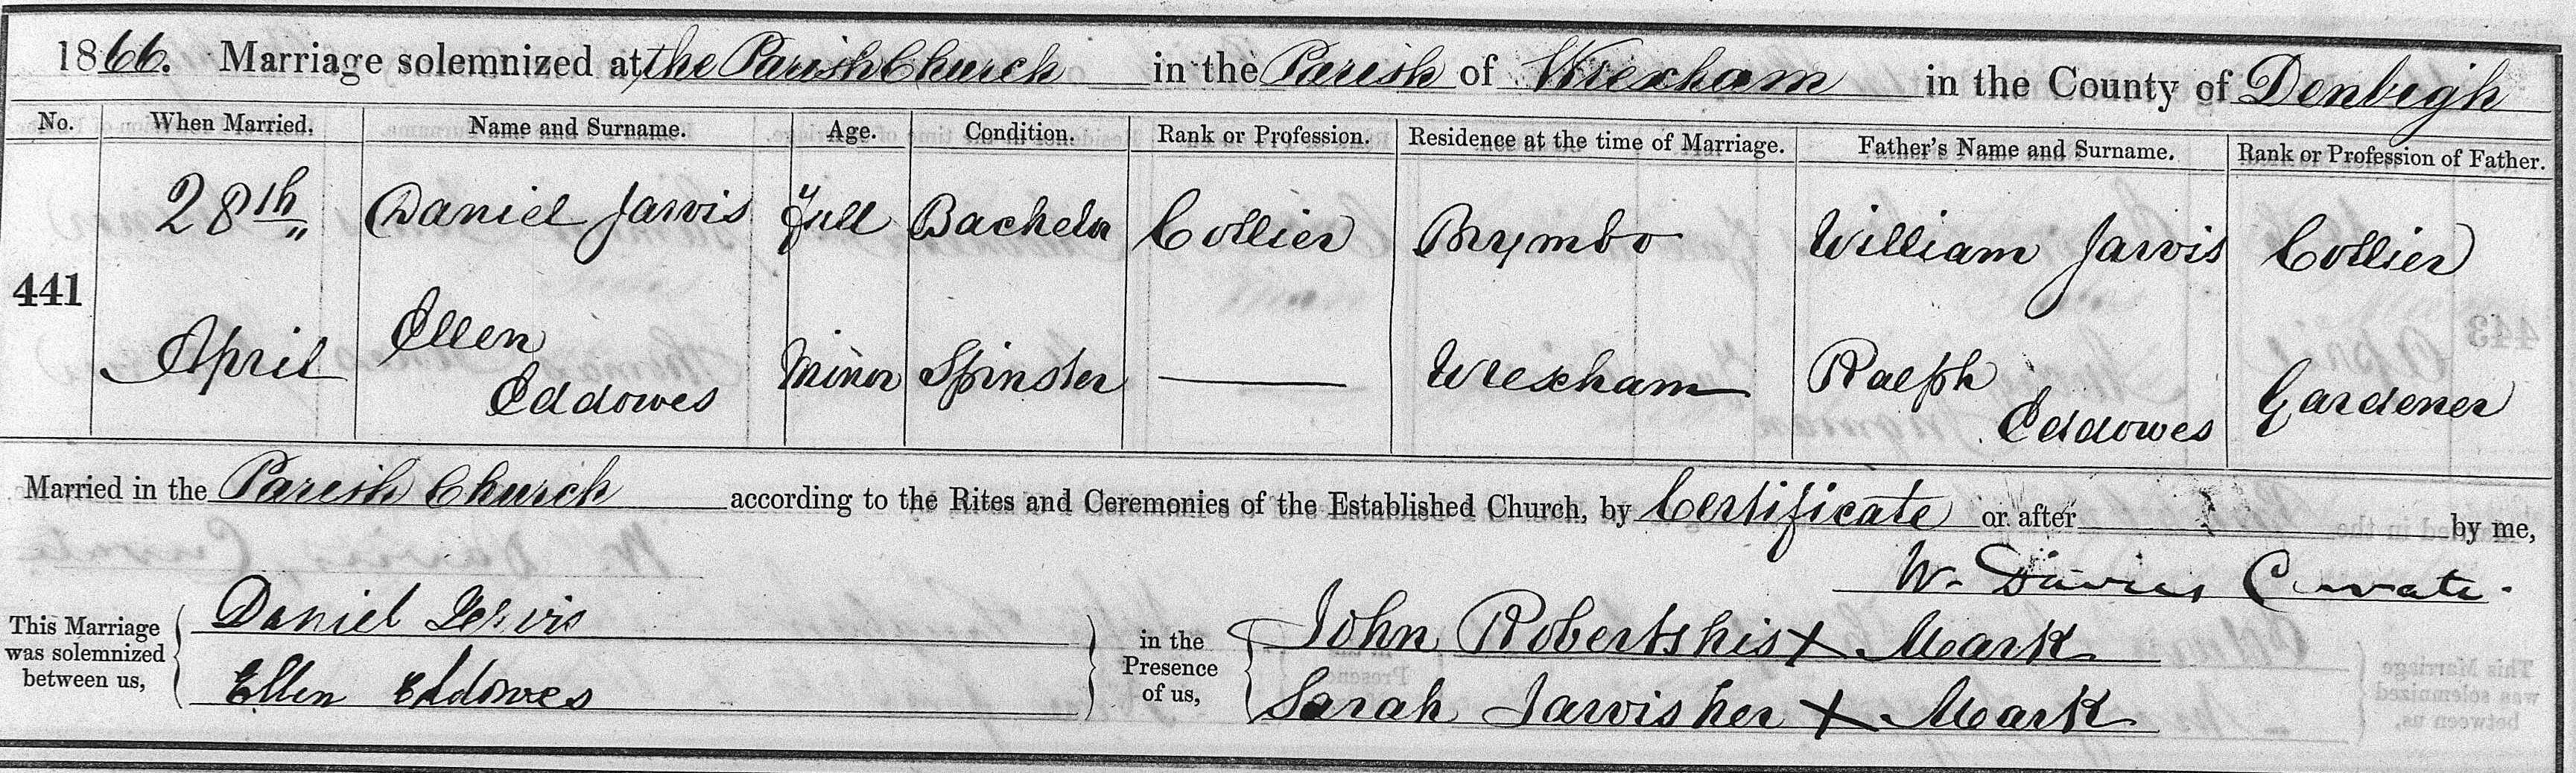 1866. Marriage solemnized at the Parish Church in the Parish of Wrexham in the County of Denbigh
No. When Married. Name and Surname. Age. Condition. Rank or Profession. Residence at the time of Marriage. Father's Name and Surname. Rank or Profession of Father.
441
28th Daniel Jarvis Full Bachelor Collier Brymbo William Jarvis Collier
April Ellen Eddowes Minor Spinster — Wrexham Ralph Eddowes Gardener
Married in the Parish Church according to the Rites and Ceremonies of the Established Church, by Certificate or after by me,
W. Davies Curate.
This Marriage was solemnized between us,
Daniel Jervis
Ellen Eddowes
in the Presence of us,
John Roberts his X Mark
Sarah Jarvis her X Mark